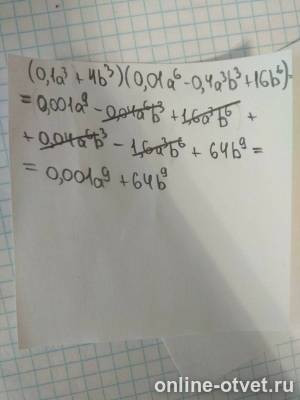 (0,1a³ + 4b³)(0,01a⁶ - 0,4a³b³ + 16b⁶) =
= 0,001a⁹ - 0,04a⁶b³ + 1,6a³b⁶ +
+ 0,04a⁶b³ - 1,6a³b⁶ + 64b⁹ =
= 0,001a⁹ + 64b⁹
online-otvet.ru